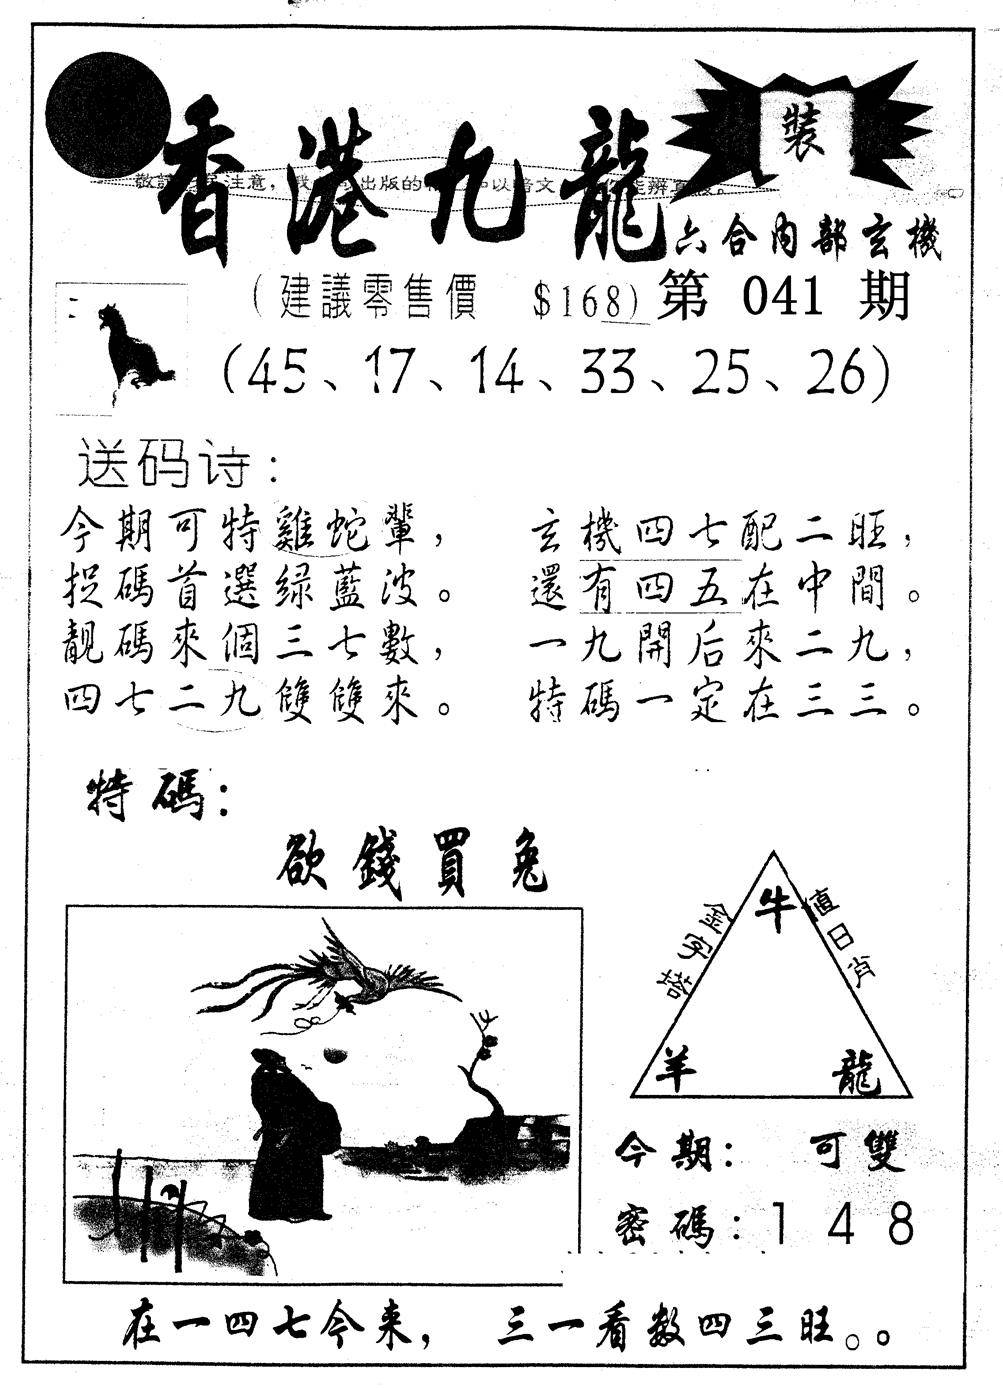 裝
香港九龍
注意，出版的以暗文辨真
六合內部玄機
（建議零售價 $168）第 041 期
（45、17、14、33、25、26）
送码诗：
今期可特雞蛇輩， 玄機四七配二旺，
捉碼首選绿藍波。 還有四五在中間。
靚碼來個三七數， 一九開后來二九，
四七二九雙雙來。 特碼一定在三三。
特碼：
欲錢買兔
金字塔 牛 值日肖
羊 龍
今期： 可雙
密碼：148
在一四七今来， 三一看数四三旺。。